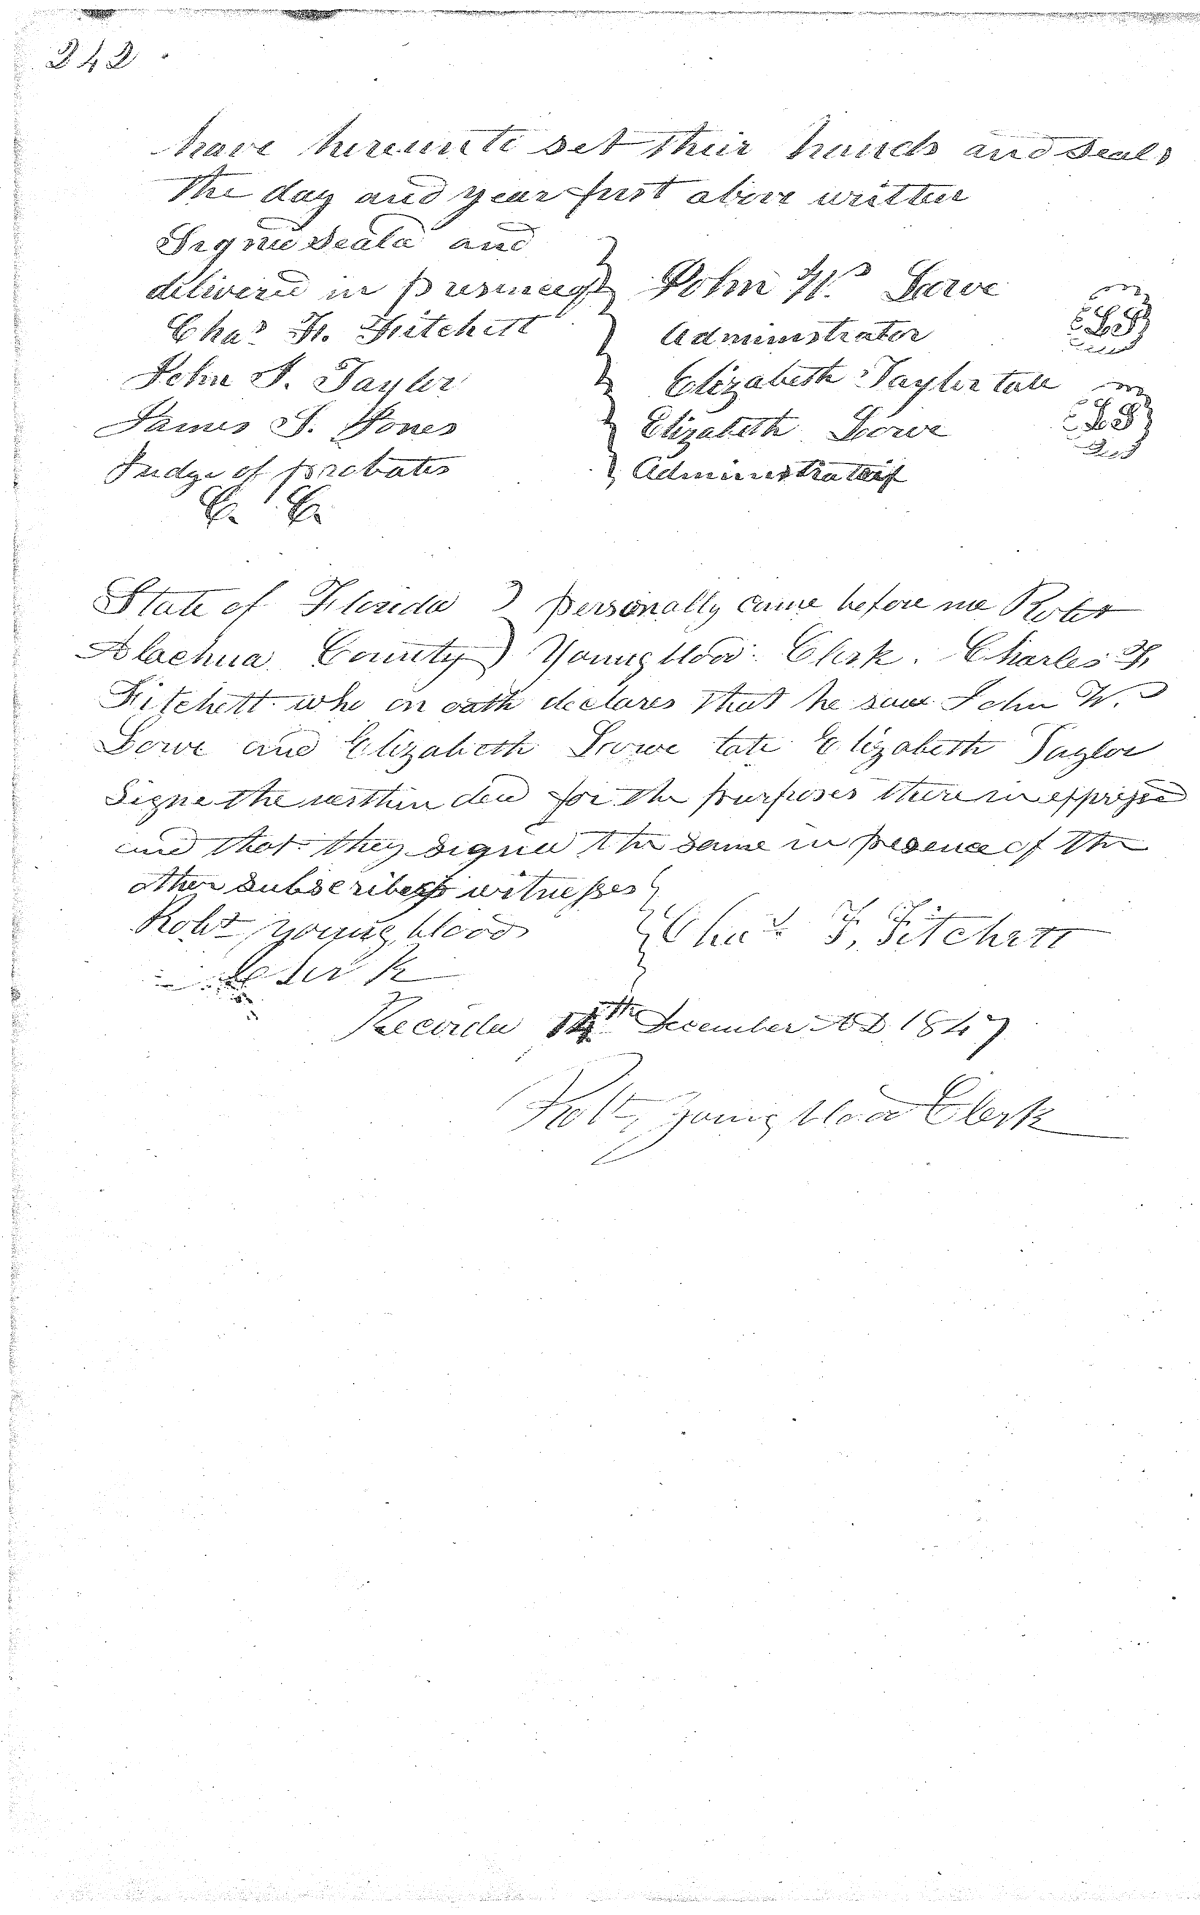 242
have hereunto set their hands and Seals
the day and year first above written
Signed Seald and
delivered in presence of
Chas F. Fitchett
John S. Taylor
James S. Jones
Judge of probates
C. C.
John W. Lowe
Administrator LS
Elizabeth Taylor late
Elizabeth Lowe LS
Administratrix
State of Florida } personally came before me Robt
Alachua County } Youngblood Clerk. Charles F.
Fitchett who on oath declares that he saw John W.
Lowe and Elizabeth Lowe late Elizabeth Taylor
Signe the within deed for the purposes therein expressed
and that they signed the same in presence of the
other subscribeing witnesses
Robt Youngblood
Clerk
Chas F. Fitchett
Recorded 14th December AD 1847
Robt Youngblood Clerk